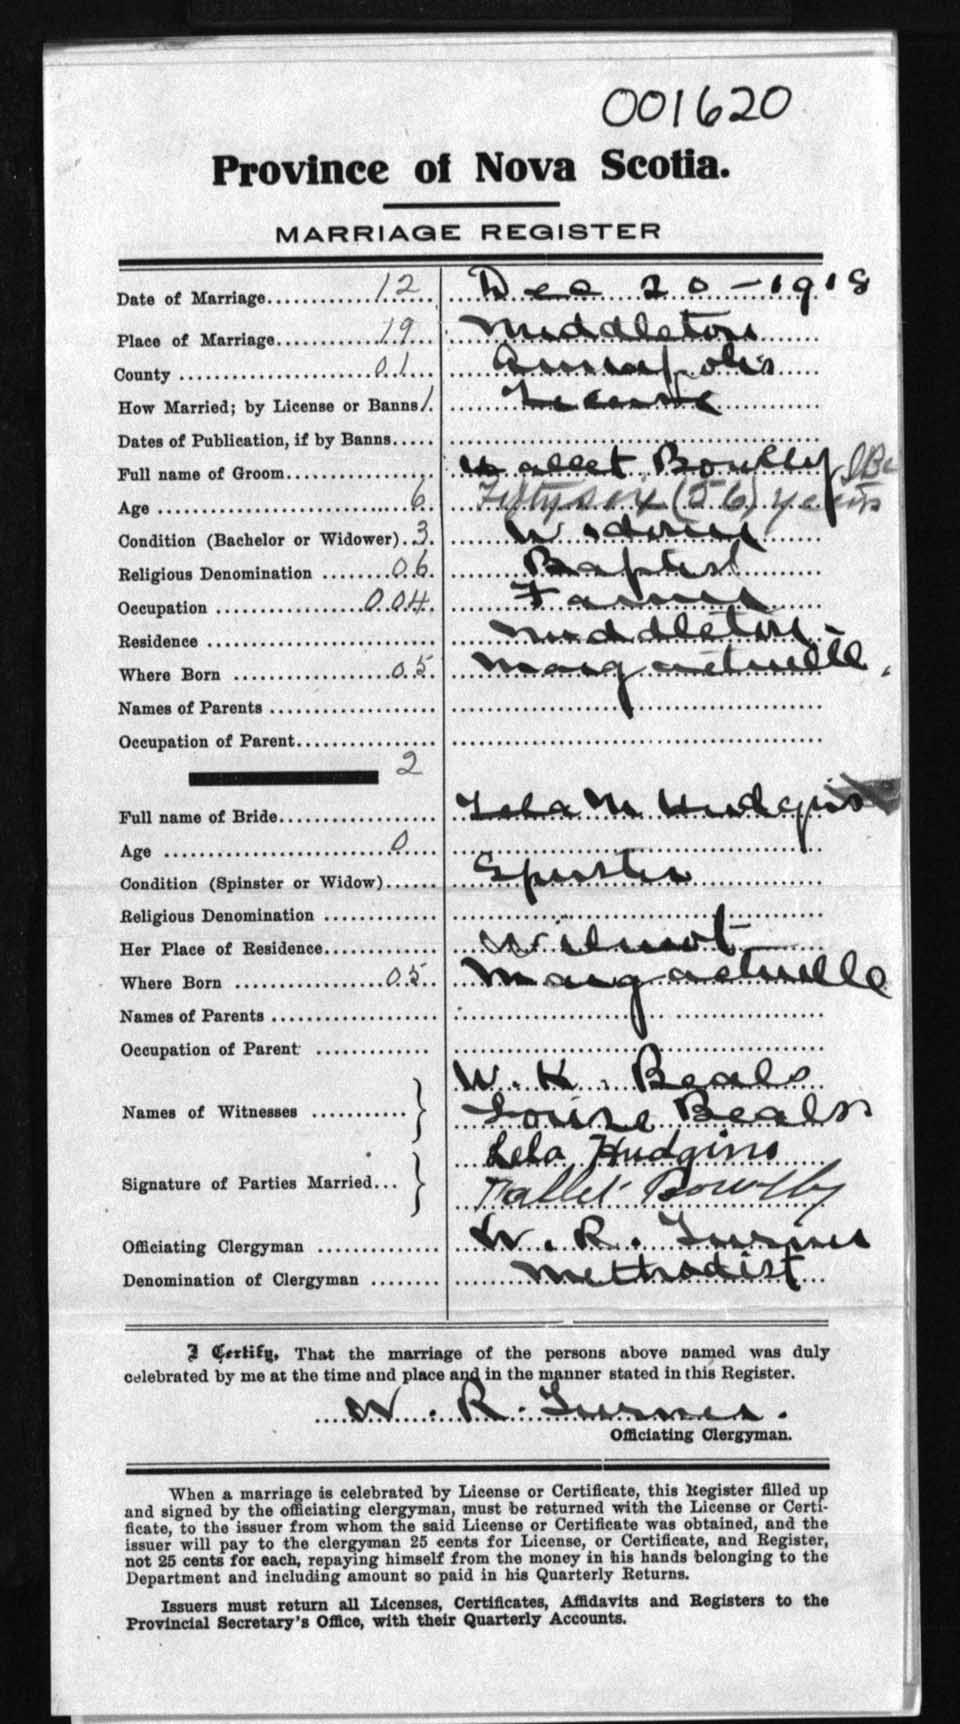 001620
Province of Nova Scotia.
MARRIAGE REGISTER
Date of Marriage 12 Dec 20-1918
Place of Marriage 19 Middleton
County 01 Annapolis
How Married; by License or Banns 1. License
Dates of Publication, if by Banns
Full name of Groom Bowlby
Age 6 Fifty six (56) years
Condition (Bachelor or Widower) 3 Widower
Religious Denomination 06 Baptist
Occupation 004 Farmer
Residence Middleton-
Where Born 05 Margaretville,
Names of Parents
Occupation of Parent
2
Full name of Bride Lela M Hudgins
Age 0
Condition (Spinster or Widow) Spinster
Religious Denomination
Her Place of Residence Wilmot
Where Born 05 Margaretville
Names of Parents
Occupation of Parent
Names of Witnesses } W. K. Beals
Louise Beals
Signature of Parties Married } Lela Hudgins
Bowlby
Officiating Clergyman W. R. Turner
Denomination of Clergyman Methodist
I Certify, That the marriage of the persons above named was duly
celebrated by me at the time and place and in the manner stated in this Register.
W. R. Turner.
Officiating Clergyman.
When a marriage is celebrated by License or Certificate, this Register filled up
and signed by the officiating clergyman, must be returned with the License or Certi-
ficate, to the issuer from whom the said License or Certificate was obtained, and the
issuer will pay to the clergyman 25 cents for License, or Certificate, and Register,
not 25 cents for each, repaying himself from the money in his hands belonging to the
Department and including amount so paid in his Quarterly Returns.
Issuers must return all Licenses, Certificates, Affidavits and Registers to the
Provincial Secretary's Office, with their Quarterly Accounts.